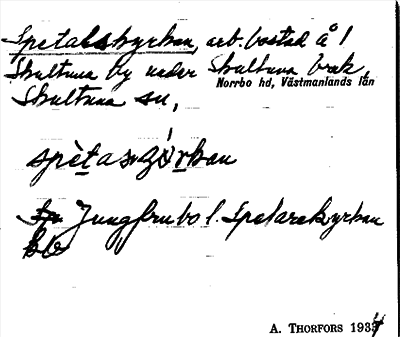 Spetalskyrkan, arb. bostad å 1
Skultuna by under Skultuna bruk,
Norrbo hd, Västmanlands län
Skultuna sn,
Jungfrubo l. Spetarekyrkan
A. THORFORS 1934